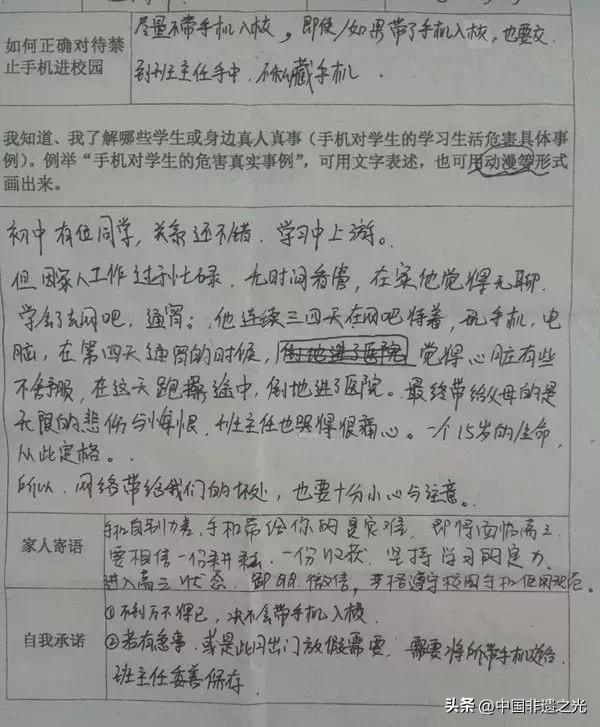 如何正确对待禁
止手机进校园
尽量不带手机入校，即使/如果带了手机入校，也要交
到班主任手中.不私藏手机.
我知道、我了解哪些学生或身边真人真事（手机对学生的学习生活危害具体事
例）。例举“手机对学生的危害真实事例”，可用文字表述，也可用动漫等形式
画出来。
初中有位同学，关系还不错.学习中上游。
但因家人工作过于忙碌.无时间看管，在家他觉得无聊.
学会了去网吧，通宵；他连续三四天在网吧待着，玩手机，电
脑，在第四天通宵的时候，倒地进了医院 觉得心脏有些
不舒服，在这天跑操途中，倒地进了医院。最终带给父母的是
无限的悲伤与悔恨.班主任也哭得很痛心。一个15岁的生命，
从此定格。
所以.网络带给我们的坏处，也要十分小心与注意。
家人寄语
自制力差，手机带给你的是灾难.即将面临高三.
要相信一份耕耘.一份收获.坚持学习的定力.
进入高三状态.卸载微信，严格遵守校园手机使用规范。
自我承诺
①不到万不得已，决不会带手机入校.
②若有急事.或是出门放假需要.需要将所带手机交给
班主任妥善保存.
头条@中国非遗之光